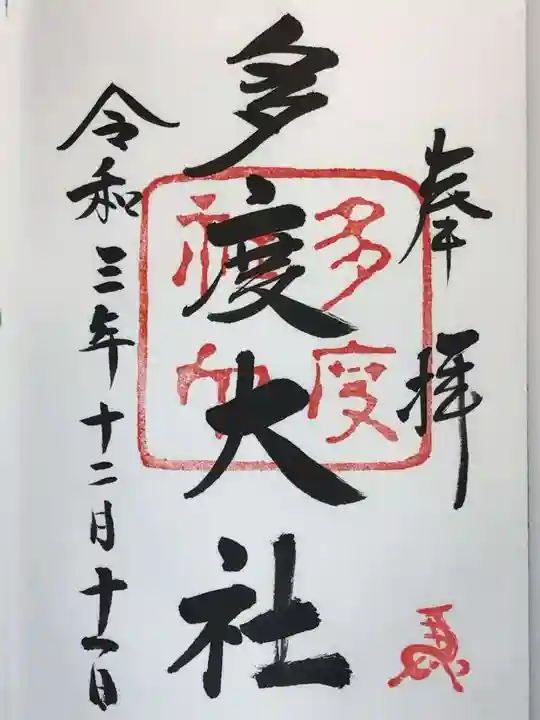 奉拝
多度大社
多度
神社
令和三年十二月十一日